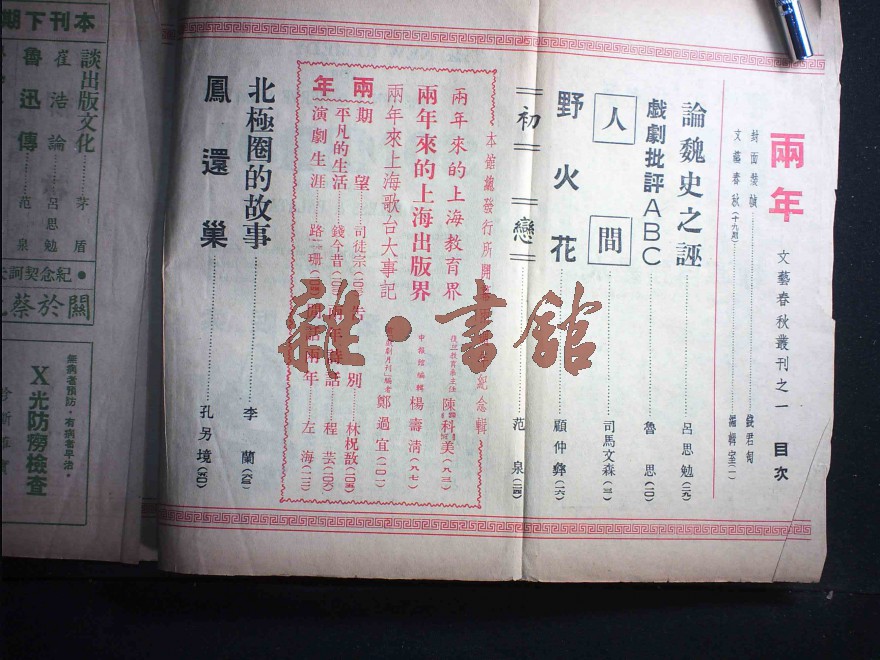 兩年
文藝春秋叢刊之一
目次
封面裝幀 錢君匋
文藝春秋(十九期) 編輯室(一)
論魏史之誣 呂思勉(二九)
戲劇批評ABC 魯思(二〇)
人間 司馬文森(三一)
野火花 顧仲彝(二六)
初戀 范泉
兩年來的上海教育界 陳科美(八三)
兩年來的上海出版界 申報館編輯 楊壽清(八七)
兩年來上海歌台大事記 鄭過宜(一〇一)
兩年
期望 司徒宗
平凡的生活 錢今昔
演劇生涯 路珊
別 林祝敔
話 程芸
閒話兩年 左海
北極圈的故事 李蘭
鳳還巢 孔另境(五〇)
本刊下期
談出版文化 茅盾
崔浩論 呂思勉
魯迅傳 范泉
紀念契訶夫
關於蔡
無病者預防·有病者早治
X光防癆檢查
雜·書館